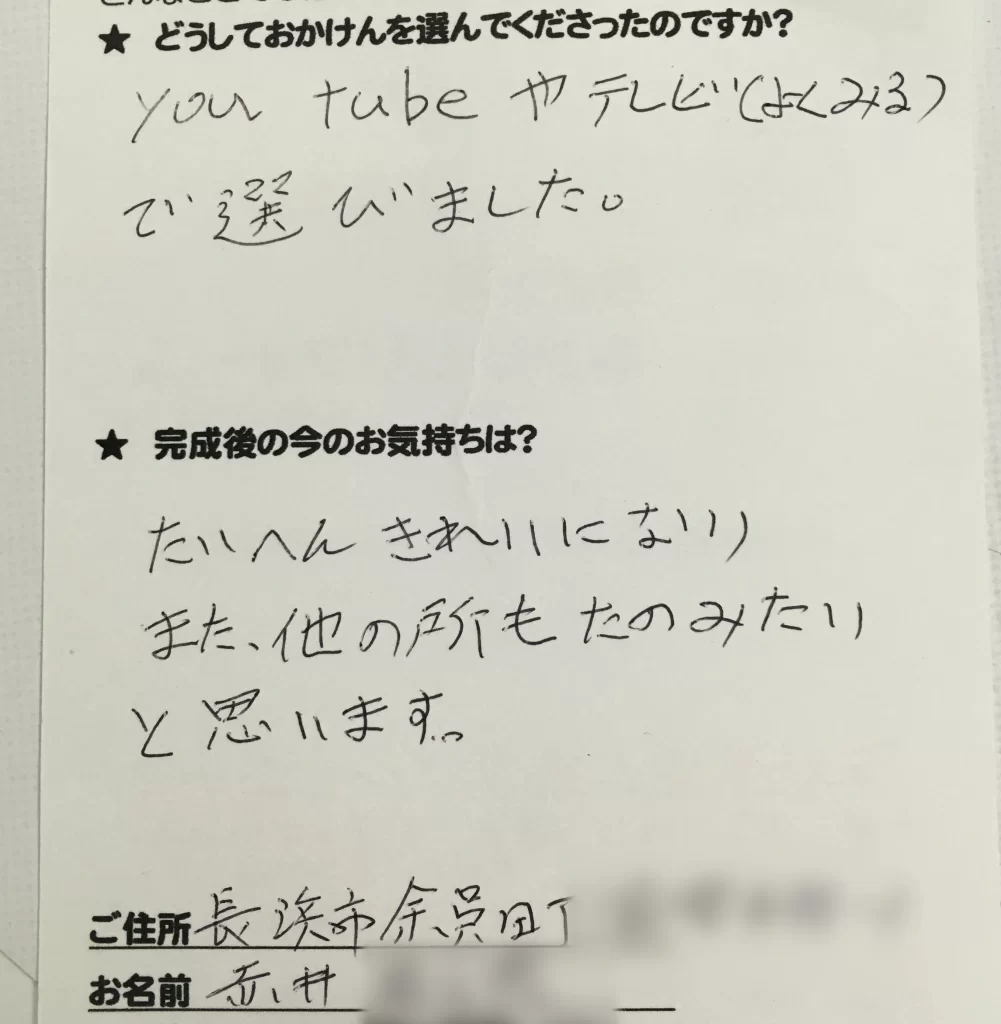 ★ どうしておかけんを選んでくださったのですか?
you tube や テレビ(よくみる)
で選びました。
★ 完成後の今のお気持ちは?
たいへん きれいに なり
また、他の所も たのみたい
と思います。
ご住所 長浜市余呉町
お名前 赤井